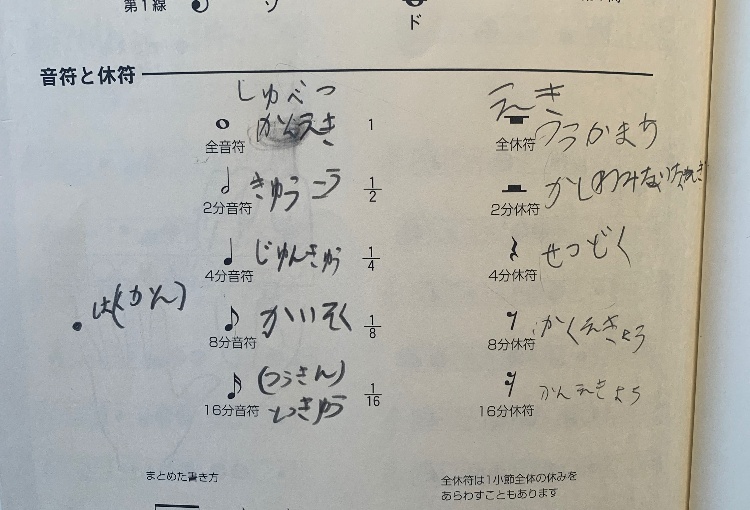 第1線 ソ
ド
音符と休符
しゅべつ
えき
かんえき
1
全音符
全休符
うらかまち
きゅうこう
1/2
2分音符
2分休符
かしわみなりちゃれぎ
じゅんきゅう
1/4
4分音符
4分休符
せつどく
かいそく
1/8
8分音符
8分休符
かくえきょう
(つうきん)
ときゅう
1/16
16分音符
16分休符
かんえきょう
まとめた書き方
全休符は1小節全体の休みを
あらわすこともあります